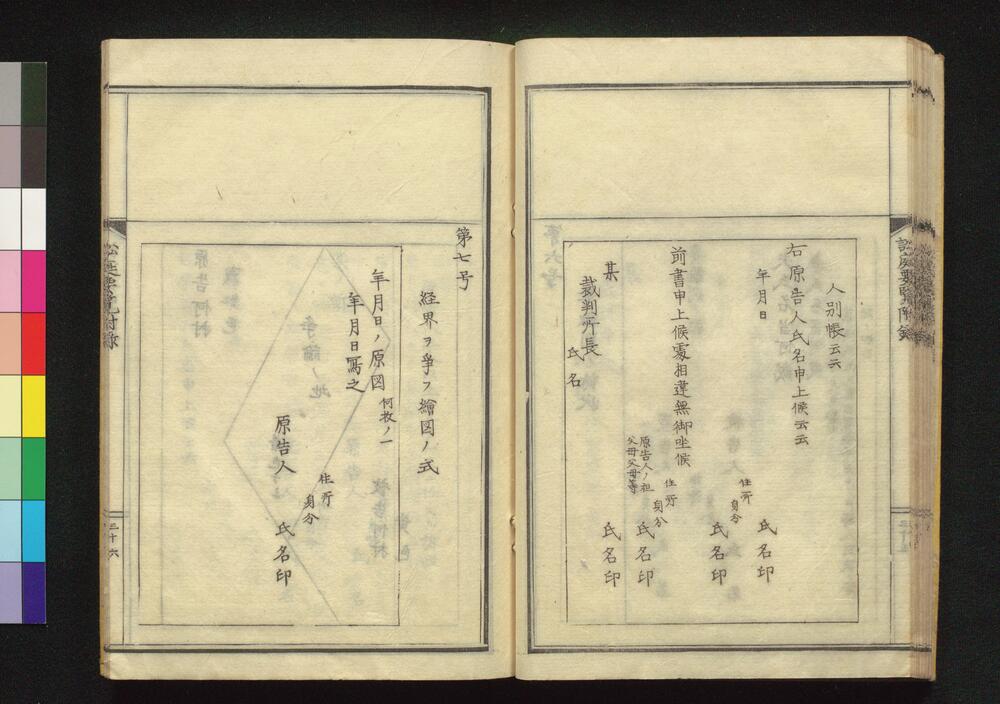 人別帳云云
右原告人氏名申上候云云
年月日
氏名印
住所
身分
氏名印
前書申上候處相違無御坐候
住所
身分
原告人ノ祖
父母父母等
氏名印
氏名印
某
裁判所長
氏名
第七号
経界ヲ爭フ繪図ノ式
年月日ノ原図
何枚ノ一
年月日寫之
住所
身分
原告人
氏名印
訟庭要覧附録
三十六